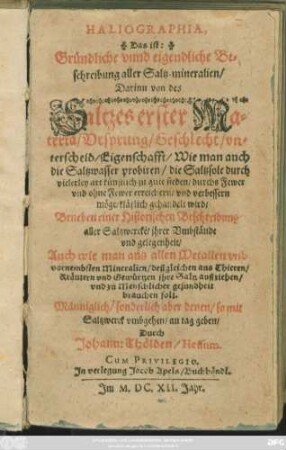 HALIOGRAPHIA,
Das ist:
Gründliche vnnd eigendliche Be-
schreibung aller Saltz-mineralien/
Darinn von des
Saltzes erster Ma-
teria/ Vrsprung/ Geschlecht/ vn-
terscheid/ Eigenschafft/ Wie man auch
die Saltzwasser probiren/ die Saltzsole durch
vielerley art künstlich zu gute sieden/ durchs Fewer
vnd ohne Fewer erreichern/ vnd verbessern
möge/ klärlich gehandelt wird/
Beneben einer Historischen Beschreibung
aller Saltzwercke/ ihrer Vmbstände
vnd gelegenheit/
Auch wie man aus allen Metallen vnd
vornembsten Mineralien/ deßgleichen aus Thieren/
Kräutern vnd Gewürtzen ihre Saltz ausziehen/
vnd zu Menschlicher gesundheit
brauchen soll.
Männiglich/ sonderlich aber denen/ so mit
Saltzwerck vmbgehen/ an tag geben/
Durch
Johann: Thölden/ Hessum.
CUM PRIVILEGIO.
In verlegung Jacob Apels/ Buchhändl.
Im M. DC. XII. Jahr.